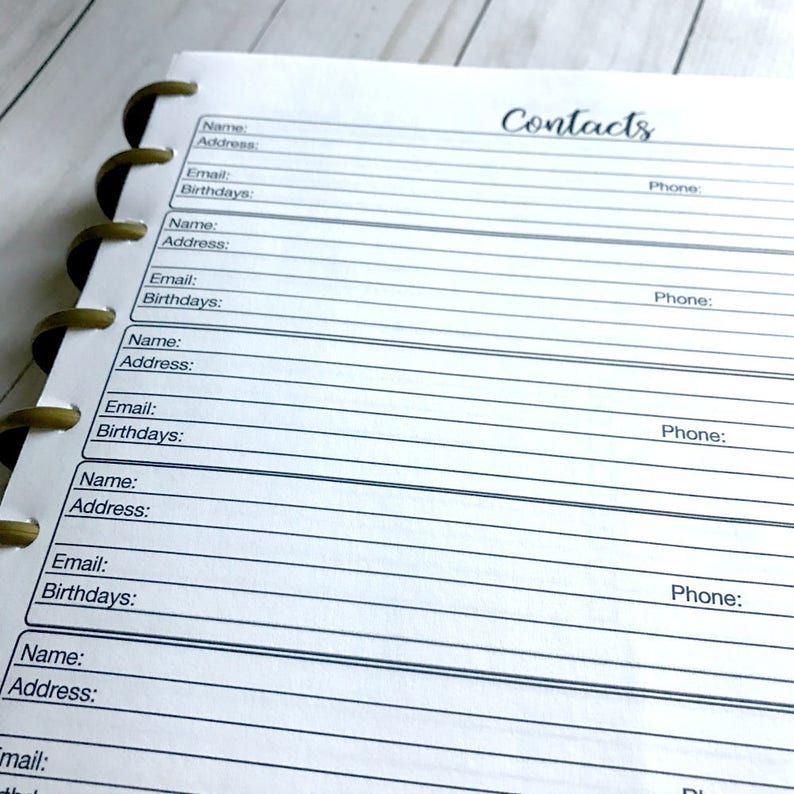 Contacts
Name:
Address:
Email: Phone:
Birthdays:
Name:
Address:
Email: Phone:
Birthdays:
Name:
Address:
Email: Phone:
Birthdays:
Name:
Address:
Email: Phone:
Birthdays:
Name:
Address:
mail: